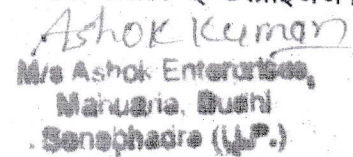 Ashok Kumar
M/s Ashok Enterprises,
Mahuaria, Dudhi
Sonebhadra (U.P.)